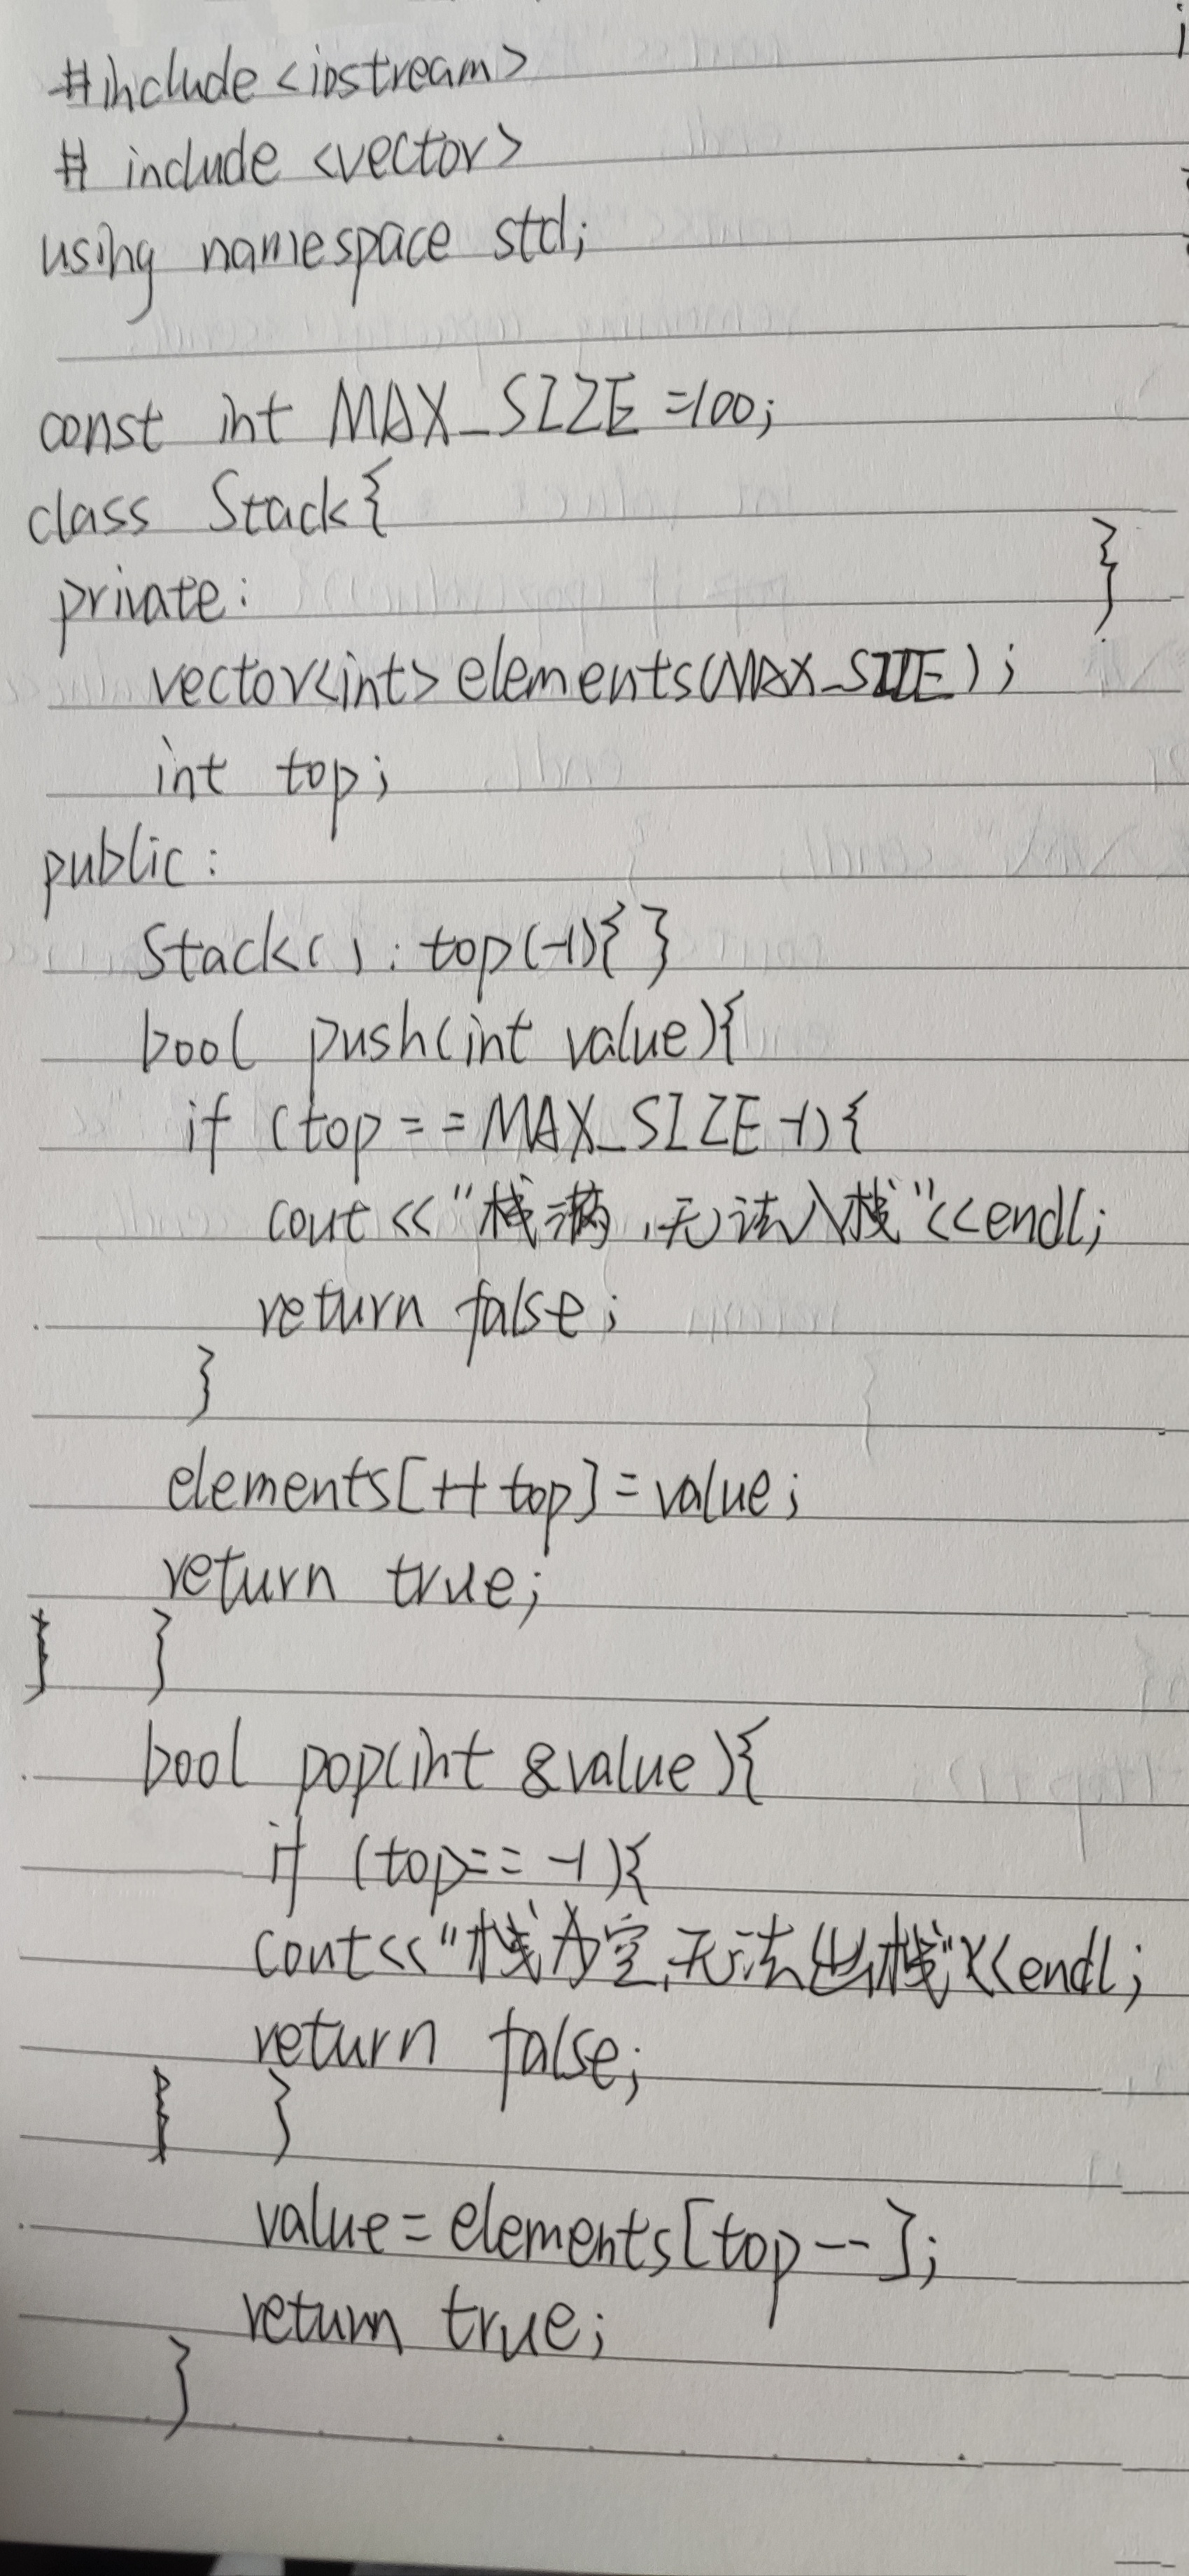 #include <iostream>
# include <vector>
using namespace std;
const int MAX_SIZE =100;
class Stack{
}
private:
vector<int> elements(MAX_SIZE);
int top;
public:
Stack() : top(-1){ }
bool push(int value){
if (top == MAX_SIZE -1){
cout << "栈满,无法入栈"<<endl;
return false;
}
elements[++top] = value;
return true;
}
bool pop(int &value){
if (top == -1){
cout<<"栈为空,无法出栈"<<endl;
return false;
}
value = elements[top--];
return true;
}